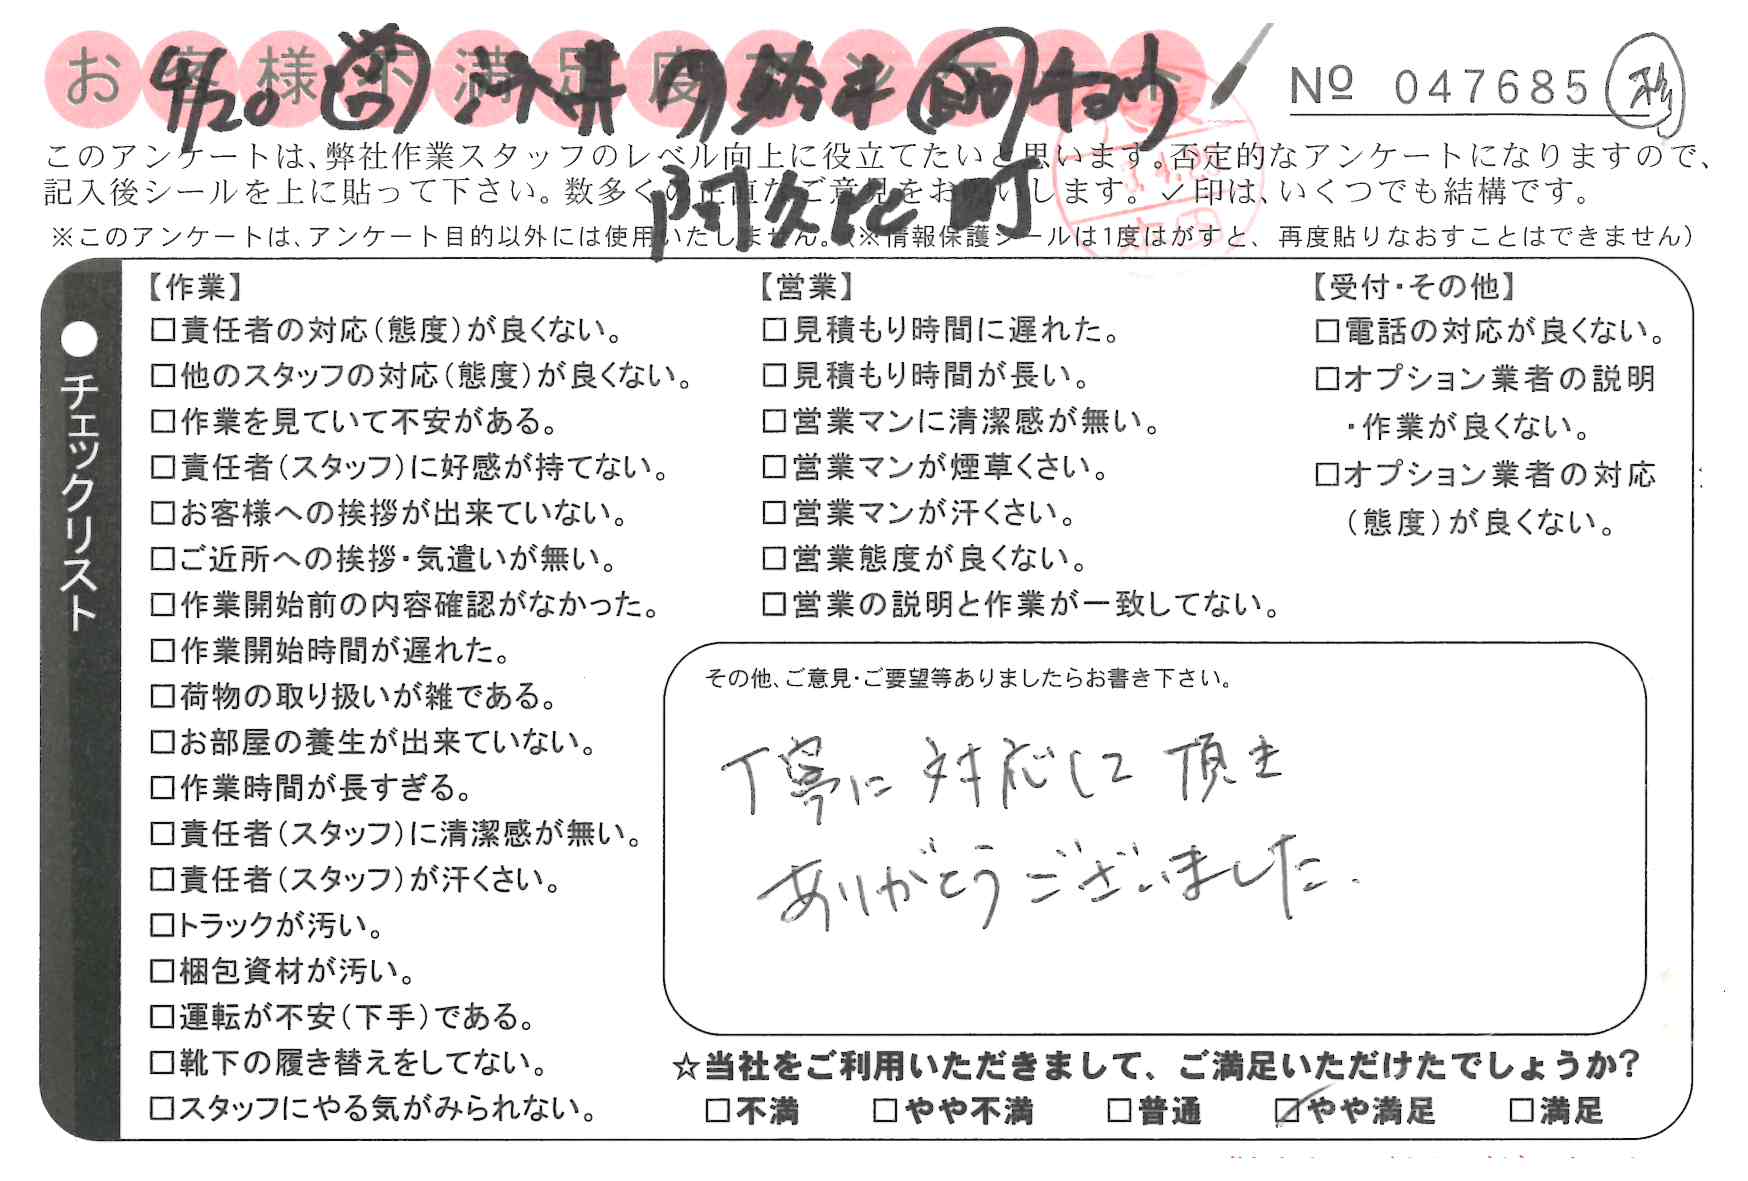 お客様不満足度アンケート
4/20
№ 047685
このアンケートは、弊社作業スタッフのレベル向上に役立てたいと思います。否定的なアンケートになりますので、
記入後シールを上に貼って下さい。数多くの正直なご意見をお願いします。✓印は、いくつでも結構です。
阿久比町
※このアンケートは、アンケート目的以外には使用いたしません。(※情報保護シールは1度はがすと、再度貼りなおすことはできません)
●チェックリスト
【作業】
□責任者の対応(態度)が良くない。
□他のスタッフの対応(態度)が良くない。
□作業を見ていて不安がある。
□責任者(スタッフ)に好感が持てない。
□お客様への挨拶が出来ていない。
□ご近所への挨拶・気遣いが無い。
□作業開始前の内容確認がなかった。
□作業開始時間が遅れた。
□荷物の取り扱いが雑である。
□お部屋の養生が出来ていない。
□作業時間が長すぎる。
□責任者(スタッフ)に清潔感が無い。
□責任者(スタッフ)が汗くさい。
□トラックが汚い。
□梱包資材が汚い。
□運転が不安(下手)である。
□靴下の履き替えをしてない。
□スタッフにやる気がみられない。
【営業】
□見積もり時間に遅れた。
□見積もり時間が長い。
□営業マンに清潔感が無い。
□営業マンが煙草くさい。
□営業マンが汗くさい。
□営業態度が良くない。
□営業の説明と作業が一致してない。
【受付・その他】
□電話の対応が良くない。
□オプション業者の説明
・作業が良くない。
□オプション業者の対応
(態度)が良くない。
その他、ご意見・ご要望等ありましたらお書き下さい。
丁寧に対応して頂き
ありがとうございました.
☆当社をご利用いただきまして、ご満足いただけたでしょうか?
□不満 □やや不満 □普通 ☑やや満足 □満足